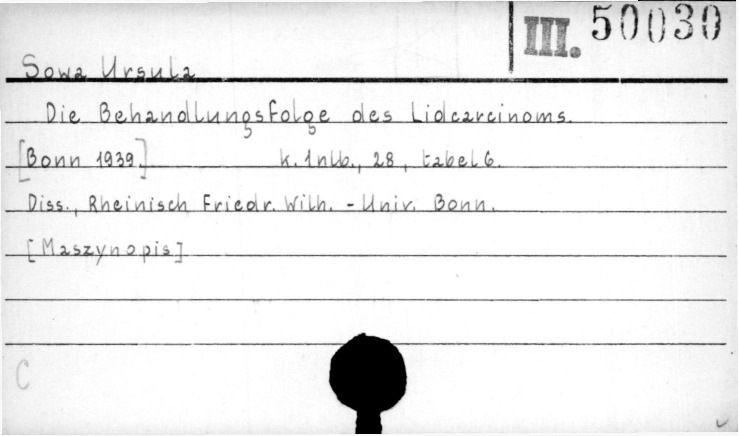 III. 50030
Sowa Ursula
Die Behandlungsfolge des Lidcarcinoms.
[Bonn 1939.] k. 1 nlb., 28, tabel 6.
Diss., Rheinisch Friedr. Wilh. - Univ. Bonn.
[Maszynopis]
C